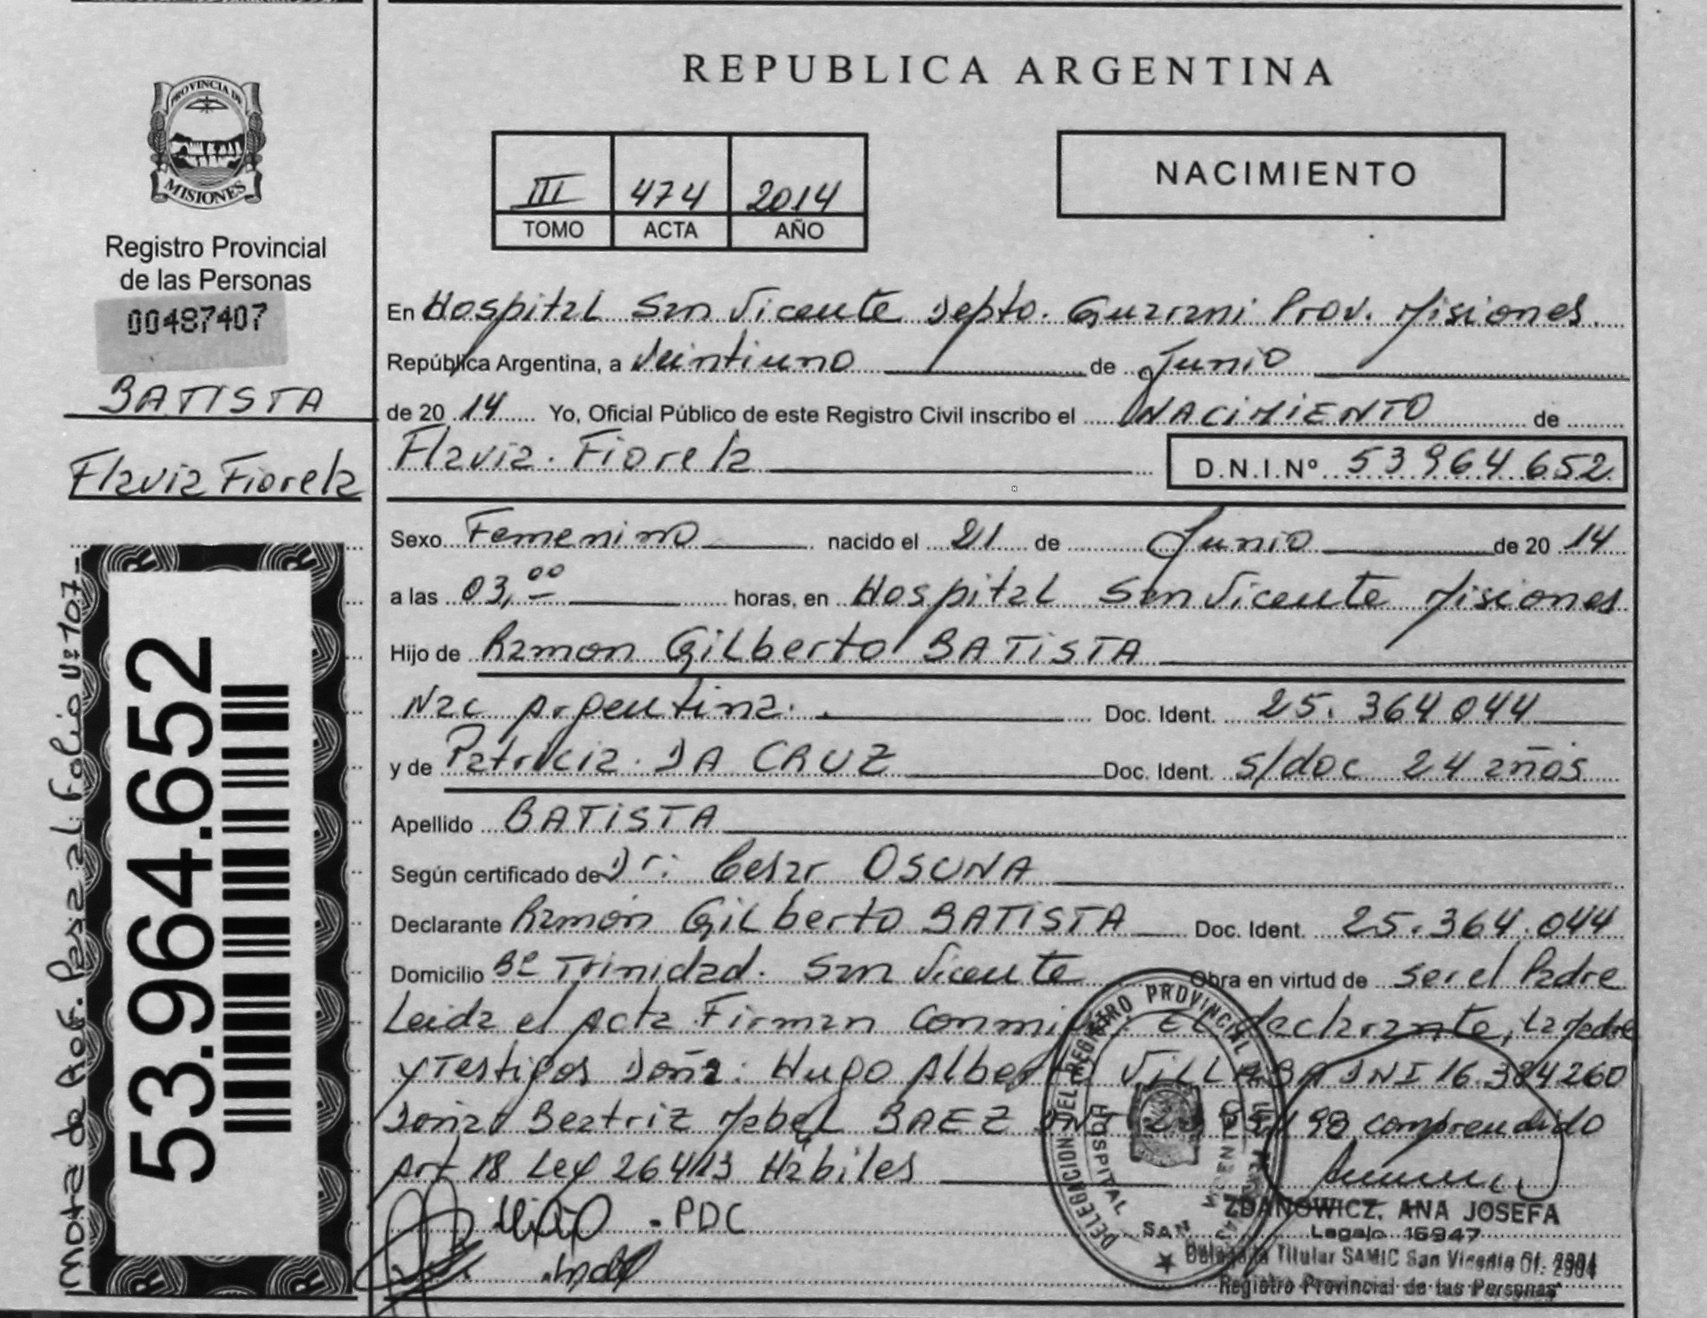 REPUBLICA ARGENTINA
PROVINCIA DE
MISIONES
Registro Provincial
de las Personas
00487407
BATISTA
Flavia Fiorela
53.964.652
Nota de Ref. Pasa al Folio Nº 107-
III 474 2014
TOMO ACTA AÑO
NACIMIENTO
En Hospital San Vicente Depto. Guarani Prov. Misiones.
República Argentina, a Veintiuno de Junio
de 2014 Yo, Oficial Público de este Registro Civil inscribo el NACIMIENTO de
Flavia. Fiorela D.N.I.Nº 53964652
Sexo Femenino nacido el 21 de Junio de 2014
a las 03,00 horas, en Hospital San Vicente Misiones
Hijo de Ramon Gilberto BATISTA
Nac Argentina. Doc. Ident. 25.364044
y de Patricia. DA CRUZ Doc. Ident. s/doc 24 años
Apellido BATISTA
Según certificado de Dr: Cesar OSUNA
Declarante Ramón Gilberto BATISTA Doc. Ident. 25.364.044
Domicilio Bº Trinidad. San Vicente Obra en virtud de ser el Padre
Leida el Acta Firman Conmigo El declarante, La Madre
y Testigos Doña: Hugo Alberto VILLALBA DNI 16.384260
Doña Beatriz Mabel BAEZ DNI comprendido
Art 18 Ley 26413 Hábiles
- PDC
DELEGACION DEL REGISTRO PROVINCIAL DE LAS PERSONAS
HOSPITAL SAN VICENTE
ZDANOWICZ, ANA JOSEFA
Legajo 16947
Delegada Titular SAMIC San Vicente Of. 2904
Registro Provincial de las Personas